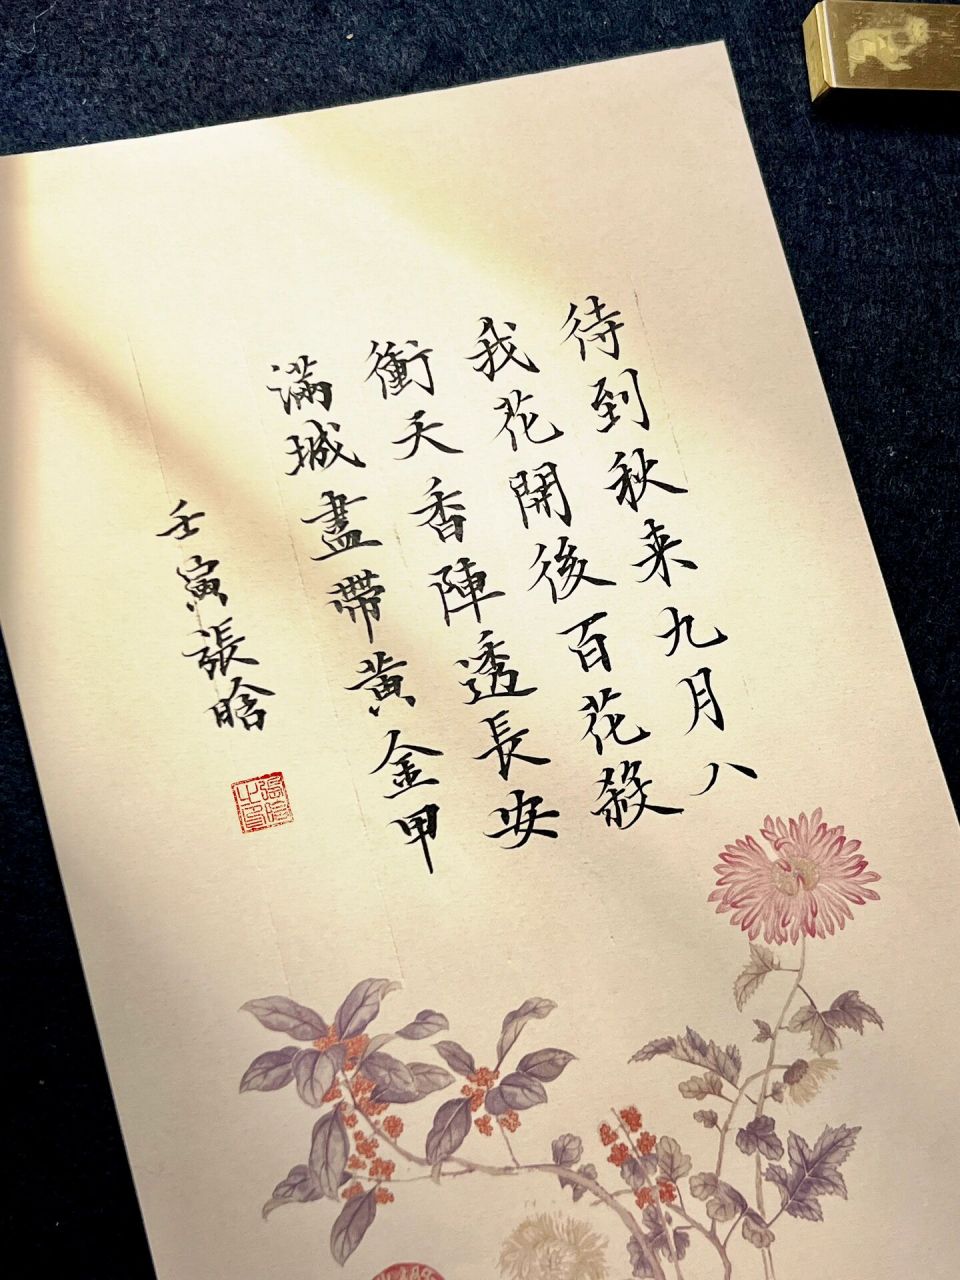 待到秋来九月八
我花開後百花殺
衝天香陣透長安
滿城盡帶黃金甲
壬寅張晗